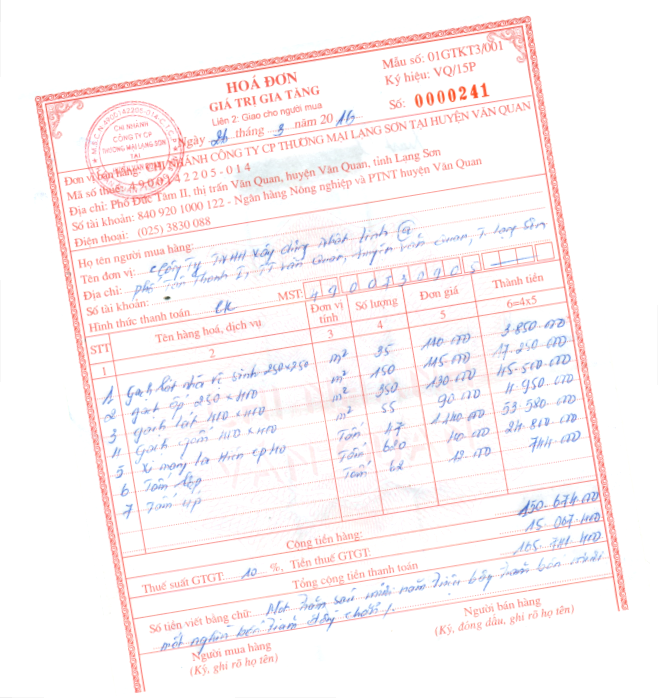 HOÁ ĐƠN
GIÁ TRỊ GIA TĂNG
Liên 2: Giao cho người mua
Ngày 26 tháng 3 năm 2016
Mẫu số: 01GTKT3/001
Ký hiệu: VQ/15P
Số: 0000241
M.S.C.N:4900142205-014-C.T.C.P
CHI NHÁNH
CÔNG TY CP
THƯƠNG MẠI LẠNG SƠN
TẠI
Đơn vị bán hàng: CHI NHÁNH CÔNG TY CP THƯƠNG MẠI LẠNG SƠN TẠI HUYỆN VĂN QUAN
Mã số thuế: 4900142205-014
Địa chỉ: Phố Đức Tâm II, thị trấn Văn Quan, huyện Văn Quan, tỉnh Lạng Sơn
Số tài khoản: 840 920 1000 122 - Ngân hàng Nông nghiệp và PTNT huyện Văn Quan
Điện thoại: (025) 3830 088
Họ tên người mua hàng:
Tên đơn vị: Công ty TNHH xây dựng nhất linh
Địa chỉ: phố Tân Thanh I, TT Văn Quan, huyện Văn Quan, T. Lạng Sơn
Số tài khoản:
Hình thức thanh toán CK MST: 4900530905
STT Tên hàng hoá, dịch vụ Đơn vị tính Số lượng Đơn giá Thành tiền
1 2 3 4 5 6=4x5
1 Gạch lát nhà vệ sinh 250x250 m² 35 110.000 3.850.000
2 Gạch ốp 250 x 400 m² 150 115.000 17.250.000
3 Gạch lát 400 x 400 m² 350 130.000 45.500.000
4 Gạch gốm 400 x 400 m² 55 90.000 4.950.000
5 Xi măng Tấn 47 1.140.000 53.580.000
6 Tấm lợp Tấm 620 40.000 24.800.000
7 Tấm úp Tấm 62 12.000 744.000
Cộng tiền hàng: 150.674.000
Thuế suất GTGT: 10 %, Tiền thuế GTGT: 15.067.400
Tổng cộng tiền thanh toán 165.741.400
Số tiền viết bằng chữ: Một trăm sáu mươi năm triệu bảy trăm bốn mươi
một nghìn bốn trăm đồng chẵn./.
Người mua hàng Người bán hàng
(Ký, ghi rõ họ tên) (Ký, đóng dấu, ghi rõ họ tên)